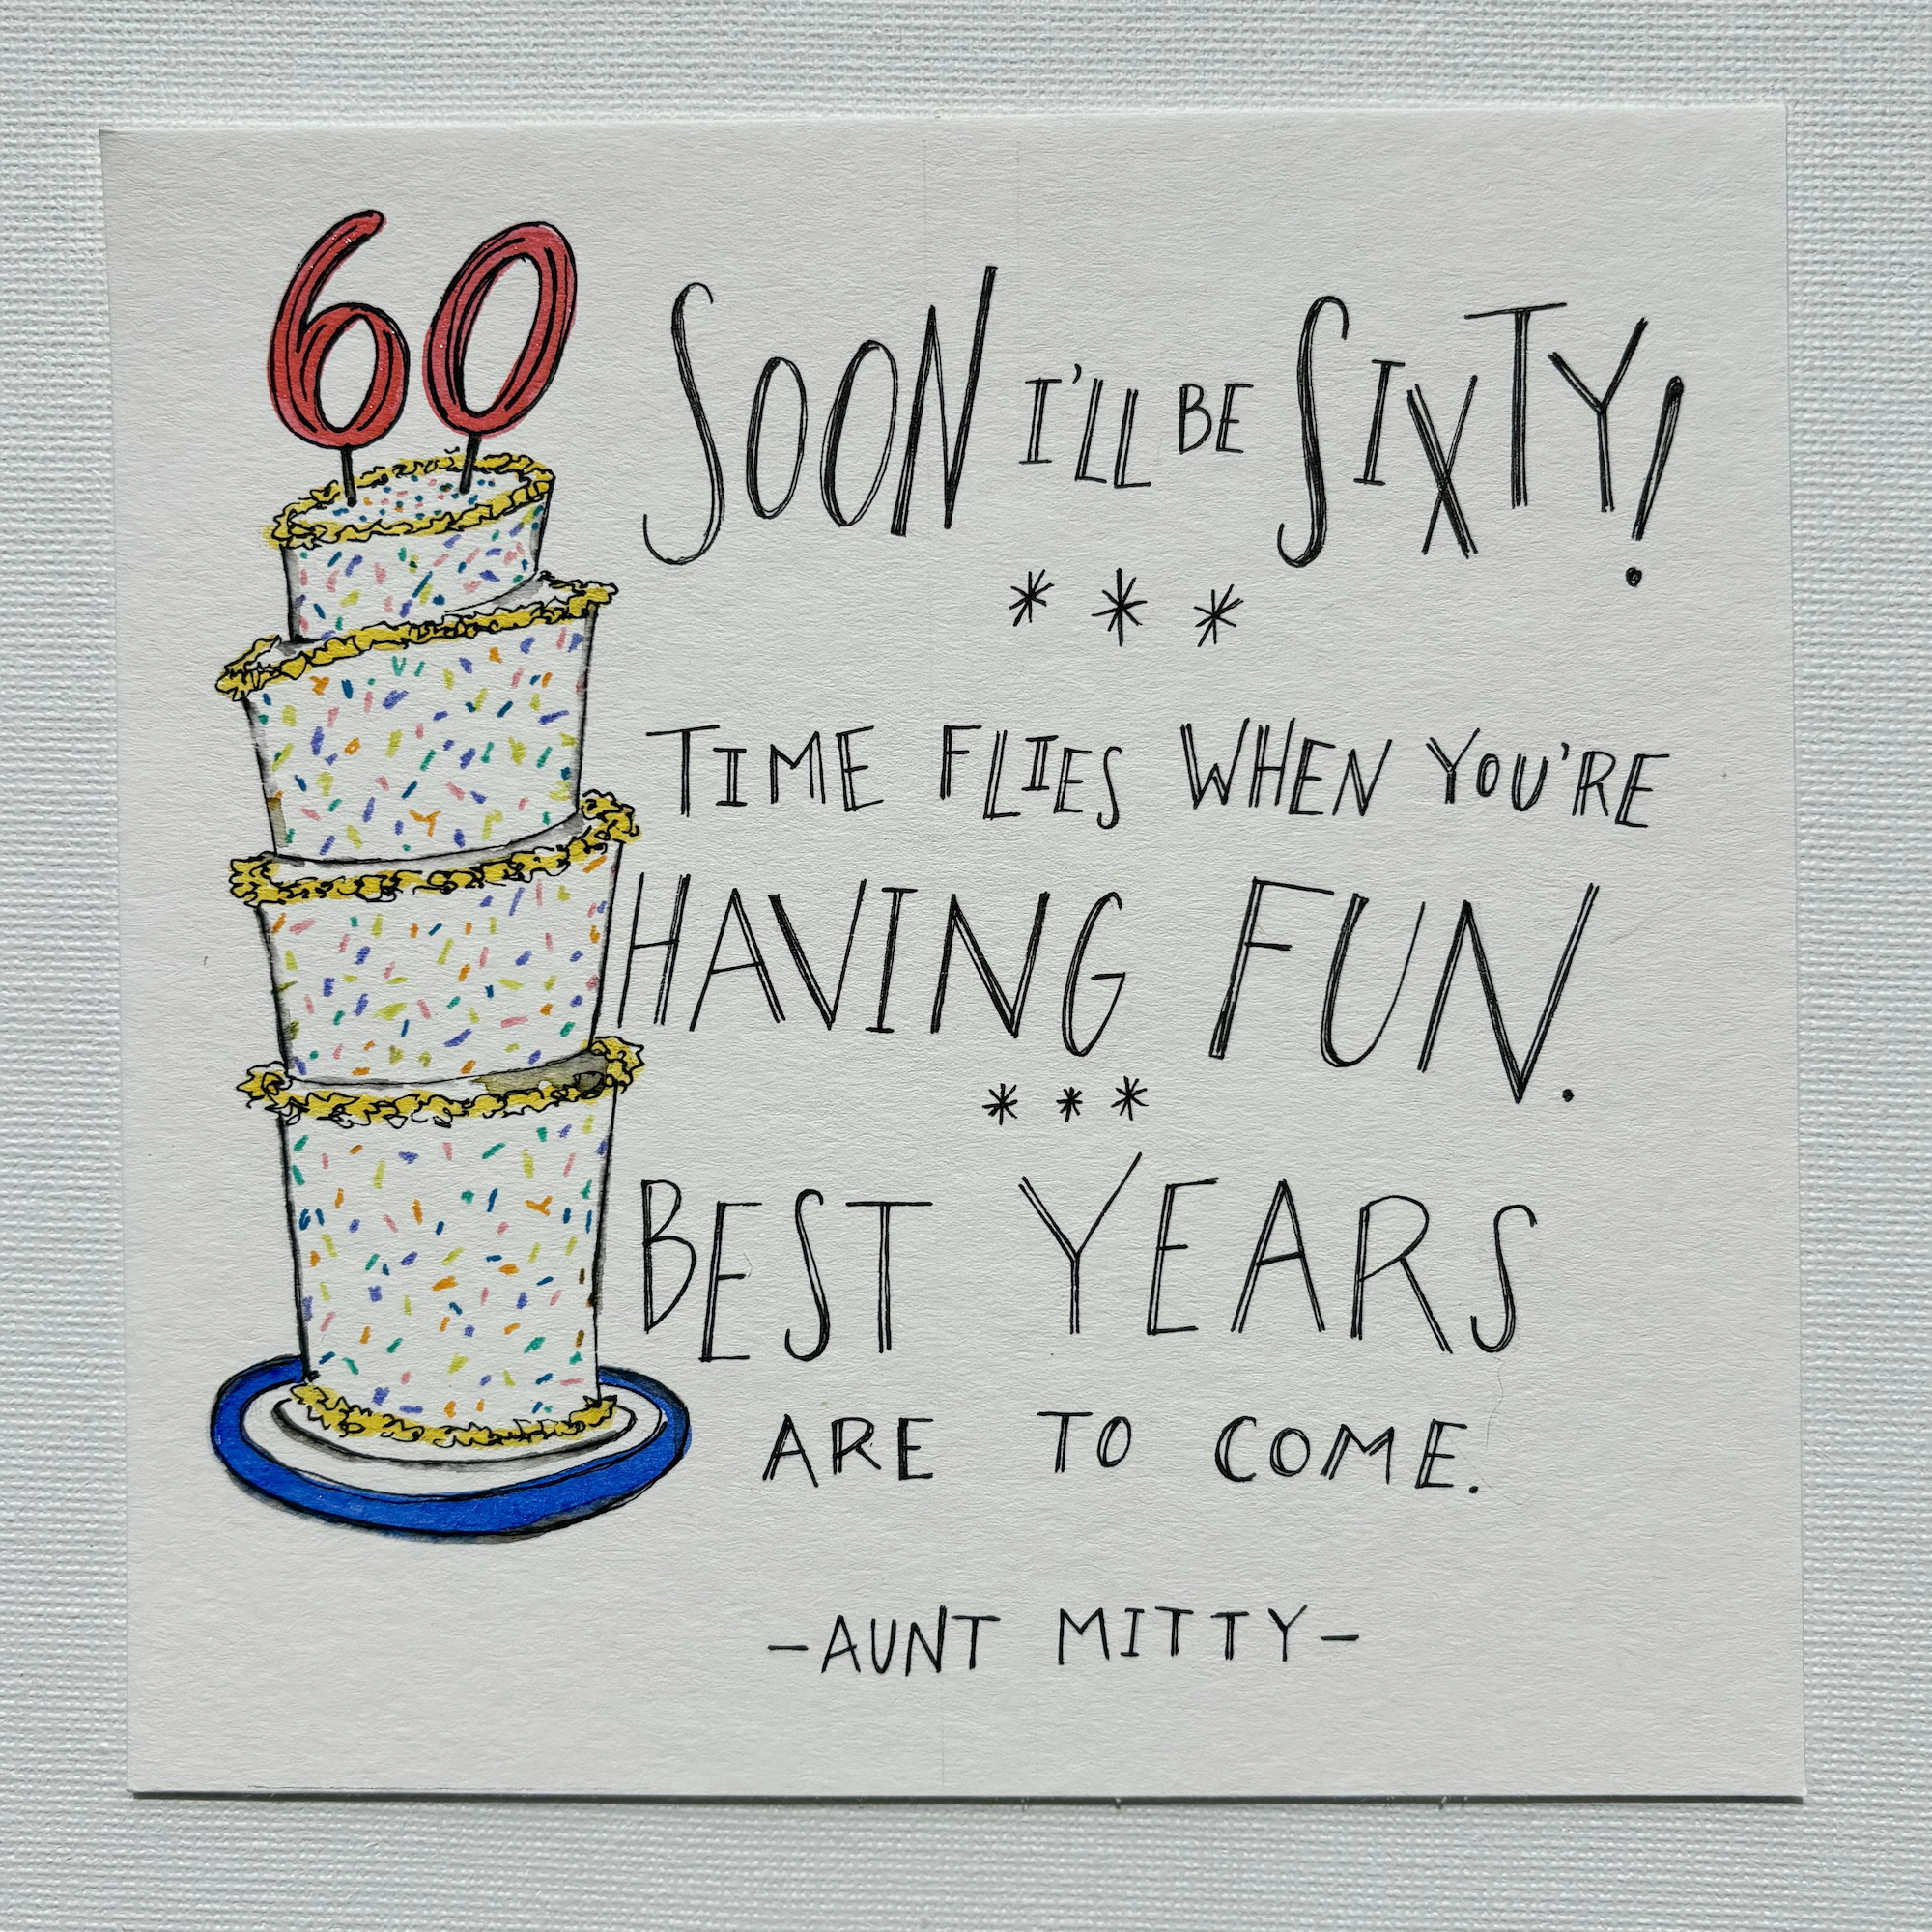 60
SOON I'LL BE SIXTY!
* * *
TIME FLIES WHEN YOU'RE
HAVING FUN.
* * *
BEST YEARS
ARE TO COME.
-AUNT MITTY-